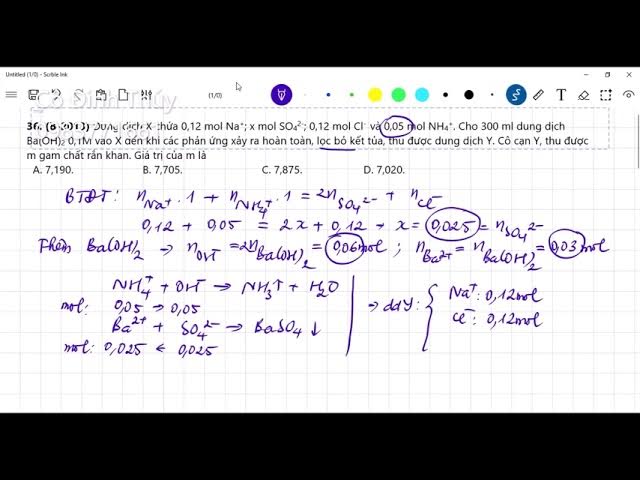 Untitled (1/0) - Scrble Ink
(1/0)
Cô Đinh Thúy
36. (B 2013) Dung dịch X chứa 0,12 mol Na⁺; x mol SO₄²⁻; 0,12 mol Cl⁻ và 0,05 mol NH₄⁺. Cho 300 ml dung dịch
Ba(OH)₂ 0,1M vào X đến khi các phản ứng xảy ra hoàn toàn, lọc bỏ kết tủa, thu được dung dịch Y. Cô cạn Y, thu được
m gam chất rắn khan. Giá trị của m là
A. 7,190. B. 7,705. C. 7,875. D. 7,020.
BTĐT: n Na⁺ . 1 + n NH₄⁺ . 1 = 2n SO₄²⁻ + n Cl⁻
0,12 + 0,05 = 2x + 0,12 → x = 0,025 = n SO₄²⁻
Thêm Ba(OH)₂ → n OH⁻ = 2n Ba(OH)₂ = 0,06 mol ; n Ba²⁺ = n Ba(OH)₂ = 0,03 mol
NH₄⁺ + OH⁻ → NH₃↑ + H₂O
mol: 0,05 → 0,05
Ba²⁺ + SO₄²⁻ → BaSO₄ ↓
mol: 0,025 ← 0,025
→ ddY: { Na⁺: 0,12mol
Cl⁻: 0,12mol